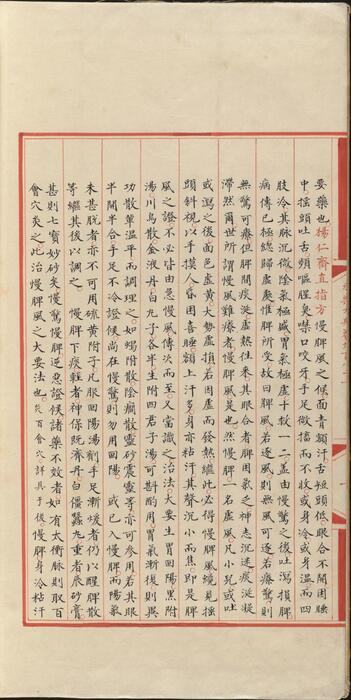 要藥也楊仁齋直指方慢脾風之候面青額汗舌短頭低眼合不開困睡
中搖頭吐舌頻嘔腥臭噤口咬牙手足微搐而不收或身冷或身溫而四
肢冷其脉沉微陰氣極盛胃氣極虛十救一二蓋由慢驚之後吐瀉損脾
病傳已極總歸虛處惟脾所受故曰脾風若逐風則無風可逐若療驚則
無驚可療但脾間痰涎虛熱往來其眼合者脾困氣乏神志沉迷痰涎凝
滯然爾世所謂慢風難療者慢脾風是也然慢脾一名虛風凡小兒或吐
或瀉之後面色虛黃大勢虛損若因虛而發熱纔此必得慢脾風境見搖
頭斜視以手摸人昏困喜睡額上汗多身亦粘汗其聲沉小而焦即是脾
風之證不必皆由急慢風傳次而至又當識之治法大要生胃回陽黑附
湯川烏散金液丹白丸子各半生附四君子湯可斟酌用胃氣漸復則異
功散輩溫平而調理之如蝎附散陰癇散靈砂震靈等亦可參用若其眼
半開半合手足不冷證候尚在慢驚則勿用回陽或已入慢脾而陽氣
未甚脫者亦不可用硫黃附子凡服回陽湯劑手足漸煖者仍以醒脾散
等繼其後以調之慢脾下痰輕者神保既濟丹白僵蠶丸重者辰砂膏
甚則七寶妙砂矣慢驚慢脾逆惡證候諸藥不效者如有太衝脉則取百
會穴灸之此治慢脾風之大要法也灸百會穴詳具于後慢脾身冷粘汗